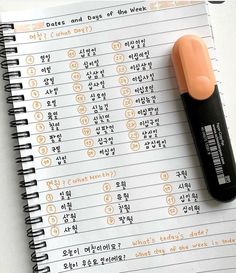 Dates and Days of the Week
며칠? (What Day?)
1 일일 11 십일일 21 이십일일
2 이일 12 십이일 22 이십이일
3 삼일 13 십삼일 23 이십삼일
4 사일 14 십사일 24 이십사일
5 오일 15 십오일 25 이십오일
6 육일 16 십육일 26 이십육일
7 칠일 17 십칠일 27 이십칠일
8 팔일 18 십팔일 28 이십팔일
9 구일 19 십구일 29 이십구일
10 십일 20 이십일 30 삼십일
(What Month?)
1 일월 5 오월 9 구월
2 이월 6 유월 10 시월
3 삼월 7 칠월 11 십일월
4 사월 8 팔월 12 십이월
오늘이 며칠이에요? What's today's date?
오늘이 무슨 요일이에요? What day of the week is today